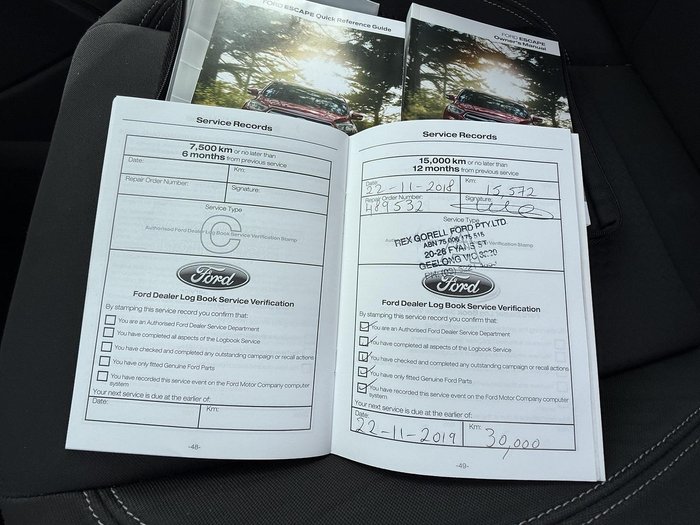 FORD ESCAPE Quick Reference Guide
FORD ESCAPE
Owner's Manual
Service Records
7,500 km or no later than
6 months from previous service
Date:
Km:
Repair Order Number:
Signature:
Service Type
Authorised Ford Dealer Log Book Service Verification Stamp
C
Ford
Ford Dealer Log Book Service Verification
By stamping this service record you confirm that:
You are an Authorised Ford Dealer Service Department
You have completed all aspects of the Logbook Service
You have checked and completed any outstanding campaign or recall actions
You have only fitted Genuine Ford Parts
You have recorded this service event on the Ford Motor Company computer
system
Your next service is due at the earlier of:
Date:
Km:
-48-
Service Records
15,000 km or no later than
12 months from previous service
Date:
22-11-2018
Km:
15,572
Repair Order Number:
489532
Signature:
Service Type
REX GORELL FORD PTY.LTD.
ABN 75 006 175 515
20-28 FYANS ST
GEELONG VIC 3220
Ford
Ford Dealer Log Book Service Verification
By stamping this service record you confirm that:
You are an Authorised Ford Dealer Service Department
You have completed all aspects of the Logbook Service
You have checked and completed any outstanding campaign or recall actions
You have only fitted Genuine Ford Parts
You have recorded this service event on the Ford Motor Company computer
system
Your next service is due at the earlier of:
Date:
22-11-2019
Km:
30,000
-49-